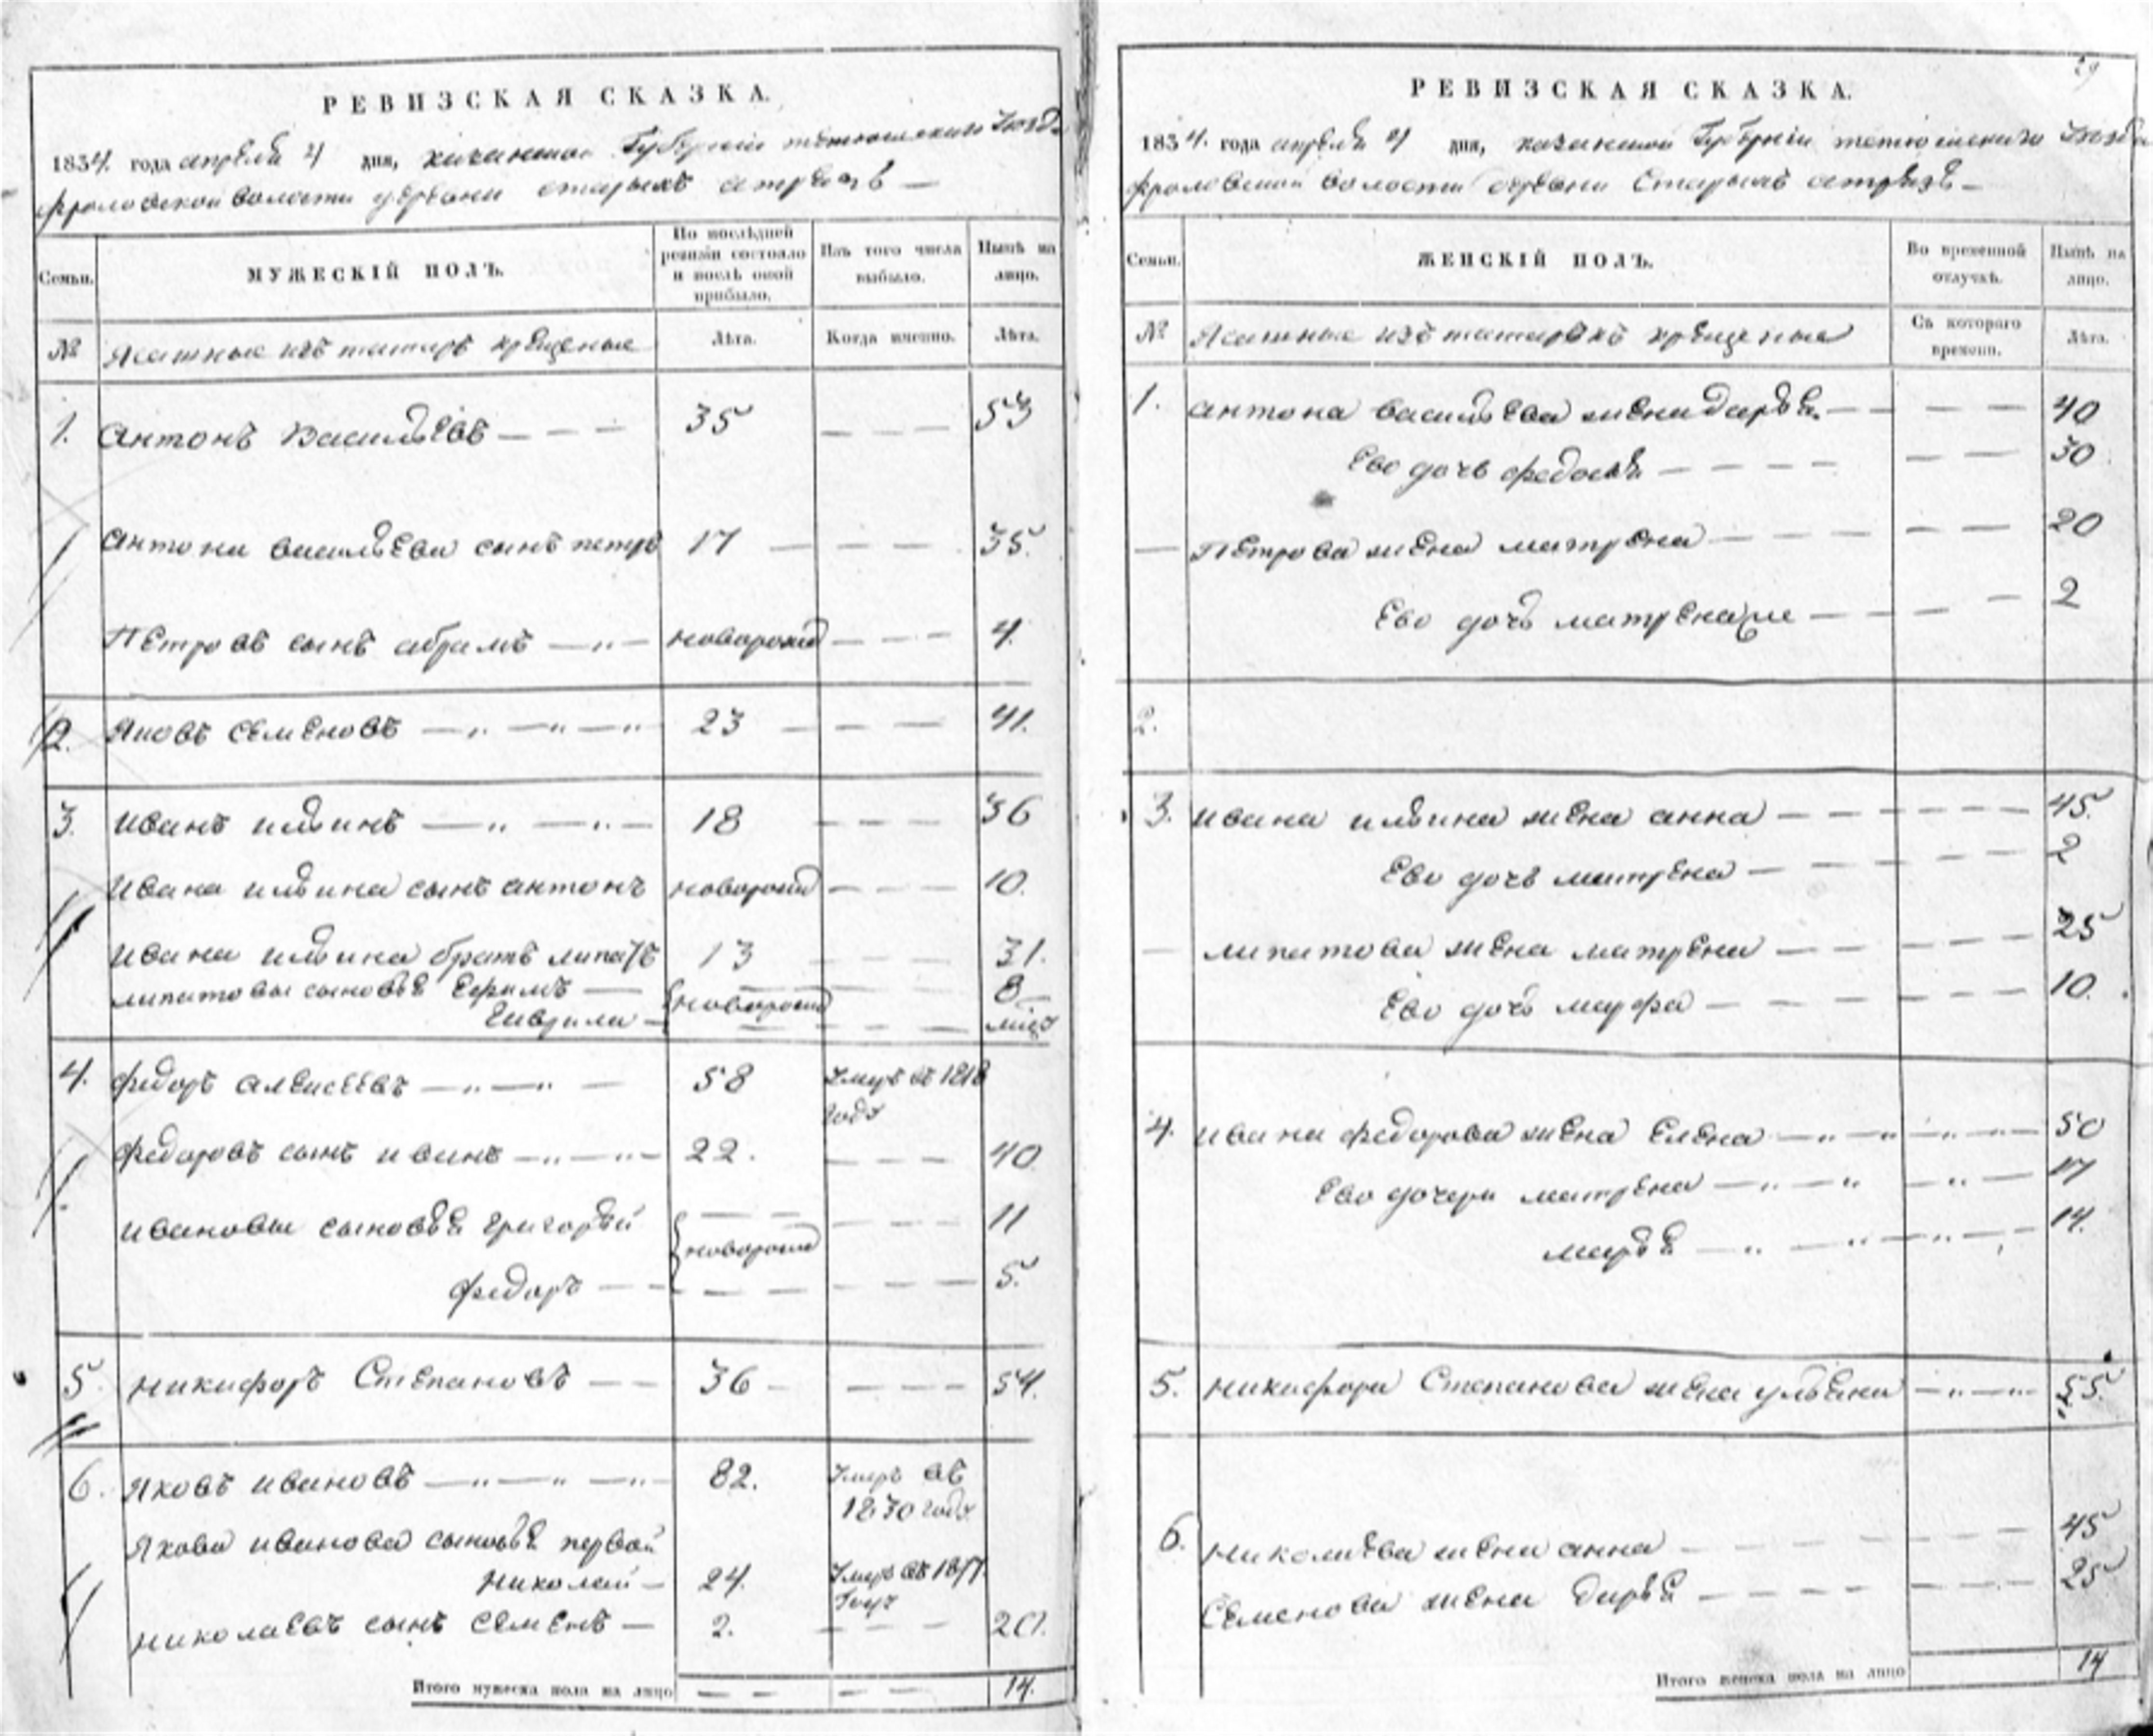 РЕВИЗСКАЯ СКАЗКА.
1834. года апреля 4 дня, казанской Губернии тетюшскаго уезда
фроловской волости деревни старыхъ атрясь —
Семьи. МУЖЕСКІЙ ПОЛЪ. По послѣдней ревизіи состояло и послѣ оной прибыло. Изъ того числа выбыло. Нынѣ на лицо.
№ Ясашные изъ татаръ крещеные Лѣта. Когда именно. Лѣта.
1. Антонъ Васильевъ — — — 35 — — — 53
Антона васильева сынъ петръ 17 — — — 35.
Петровъ сынъ абрамъ — „ — новорожд — — — 4.
2. Яковъ Семеновъ — „ — „ — „ 23 — — — 41.
3. Иванъ ильинъ — „ — „ — 18 — — — 36
Ивана ильина сынъ антонъ новорожд — — — 10.
Ивана ильина братъ липатъ 13 — — — 31.
липатовы сыновья Ефимъ — новорожд — — — 8
Гаврила — — — —
4. Федоръ алексеевъ — „ — „ — 58 умеръ въ 1818
году
Федоровъ сынъ иванъ — „ — „ — 22. — — — 40
Ивановы сыновья григорьй новорожд — — — 11
федоръ — — — — — 5.
5. Никифоръ Степановъ — — 36 — — — — 54.
6. Яковъ ивановъ — „ — „ — „ 82. умеръ въ
1830 году
Якова иванова сыновья первой
Николай — 24. умеръ въ
году
Николаевъ сынъ Семенъ — 2. — — — 20.
Итого мужеска пола на лицо — — — — 14.
29
РЕВИЗСКАЯ СКАЗКА.
1834. года апреля 4 дня, казанской Губерніи тетюшскаго уезда
фроловской волости деревни Старыхъ атрясь —
Семьи. ЖЕНСКІЙ ПОЛЪ. Во временной отлучкѣ. Нынѣ на лицо.
№ Ясашные изъ татаръ крещеные Съ котораго времени. Лѣта.
1. Антона васильева жена дарья — — — — 40
Ево дочь федосья — — — — — — 30
— Петрова жена матрена — — — — — 20
Ево дочь матрена же — — — — 2
2.
3. Ивана ильина жена анна — — — — — 45.
Ево дочь матрена — — — — 2
— липатова жена матрена — — — — — 25
Ево дочь марфа — — — — — — 10.
4. Ивана федорова жена Елена — „ — „ — „ — „ — 50
Ево дочери матрена — „ — „ — „ — 17
марья — „ — „ — „ — 14.
5. Никифора Степанова жена ульяна — „ — „ 55.
6. Николаева жена анна — — — — — — 45
Семенова жена дарья — — — — — — 25
Итого женска пола на лицо 14